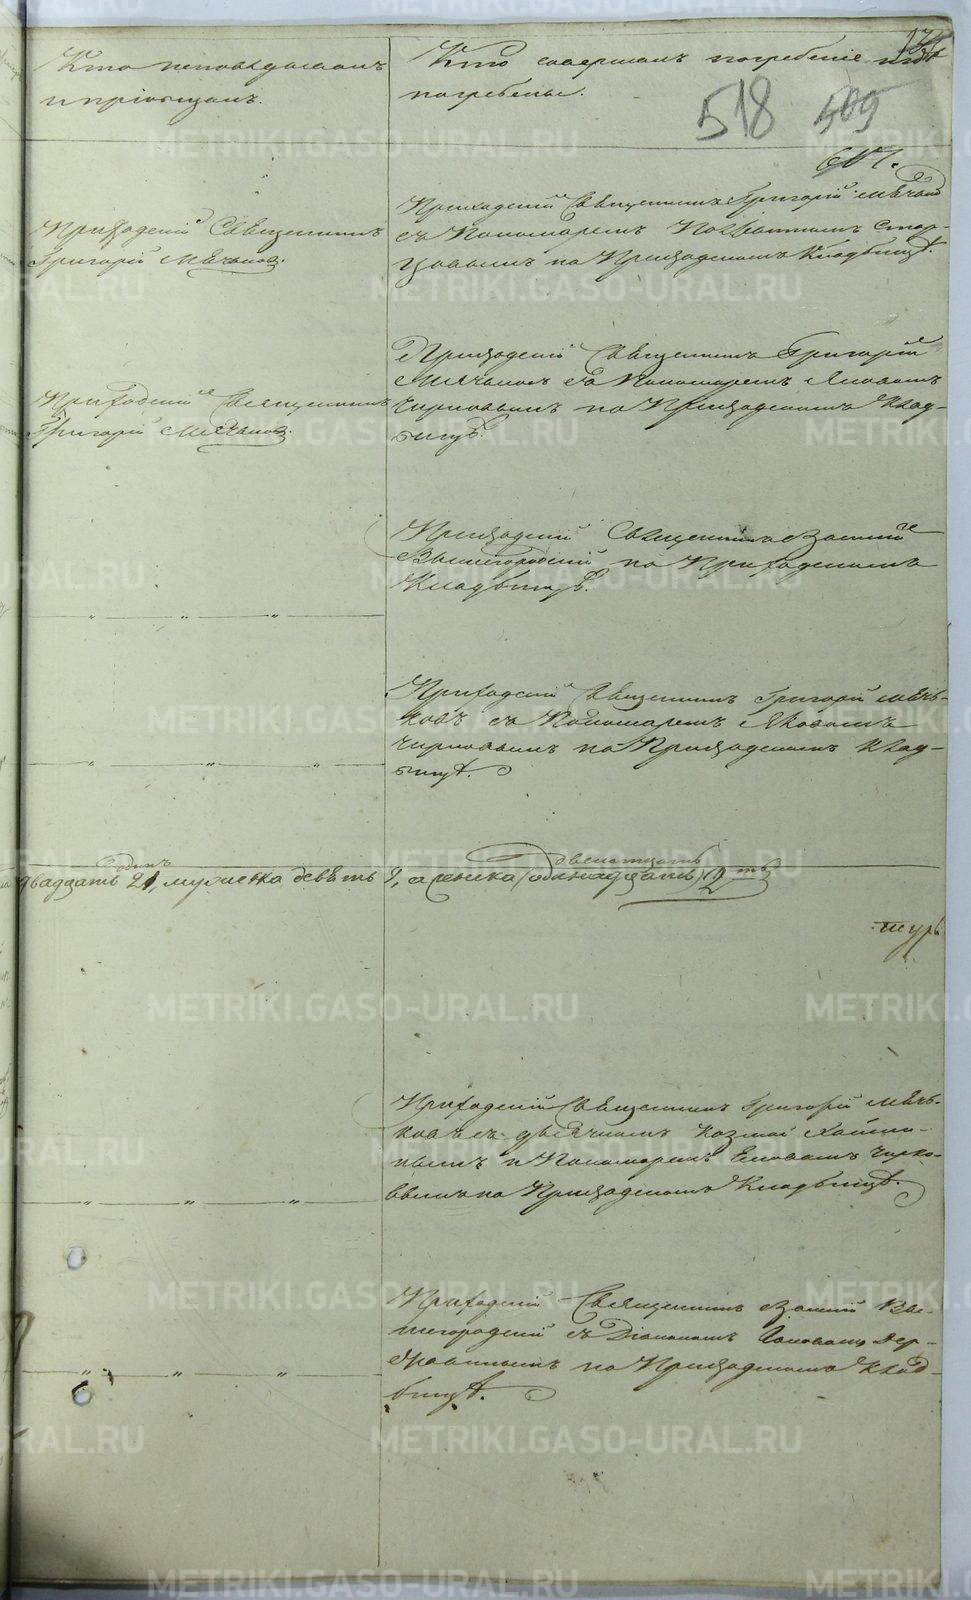 Кто исповѣдывалъ
и пріобщалъ.
Кто совершалъ погребеніе и гдѣ
погребены.
518 509
607.
Приходскій Священникъ
Григорій Мѣчьковъ.
Приходскій Священникъ Григорій Мѣчьковъ
съ Пономаремъ
на Приходскомъ Кладбищѣ.
Приходскій Священникъ
Григорій Мѣчьковъ.
Приходскій Священникъ Григорій
Мѣчьковъ съ Пономаремъ Яковомъ
Чирковымъ на Приходскомъ Клад-
бищѣ.
Приходскій Священникъ Василій
Вышегородскій на Приходскомъ
Кладбищѣ.
Приходскій Священникъ Григорій Мѣчь-
ковъ съ Пономаремъ Яковомъ
Чирковымъ на Приходскомъ Клад-
бищѣ.
одинъ
двенатцать
двадцать 21, мужеска девѣть 9, а женска (одинадцать) 12ть
Приходскій Священникъ Григорій Мѣчь-
ковъ съ дьячкомъ Козмой
и Пономаремъ Чирко-
вымъ на Приходскомъ Кладбищѣ.
Приходскій Священникъ Василій Вы-
шегородскій съ Діакономъ
на Приходскомъ Клад-
бищѣ.
METRIKI.GASO-URAL.RU